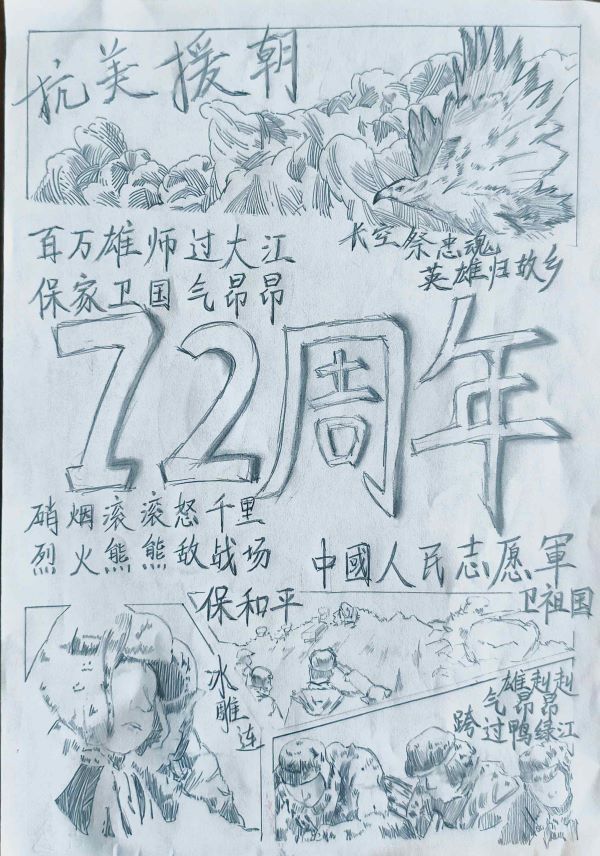 抗美援朝
百万雄师过大江
保家卫国气昂昂
长空祭忠魂
英雄归故乡
72周年
硝烟滚滚怒千里
烈火熊熊敌战场
中國人民志愿軍
保和平
卫祖国
冰雕连
雄赳赳
气昂昂
跨过鸭绿江